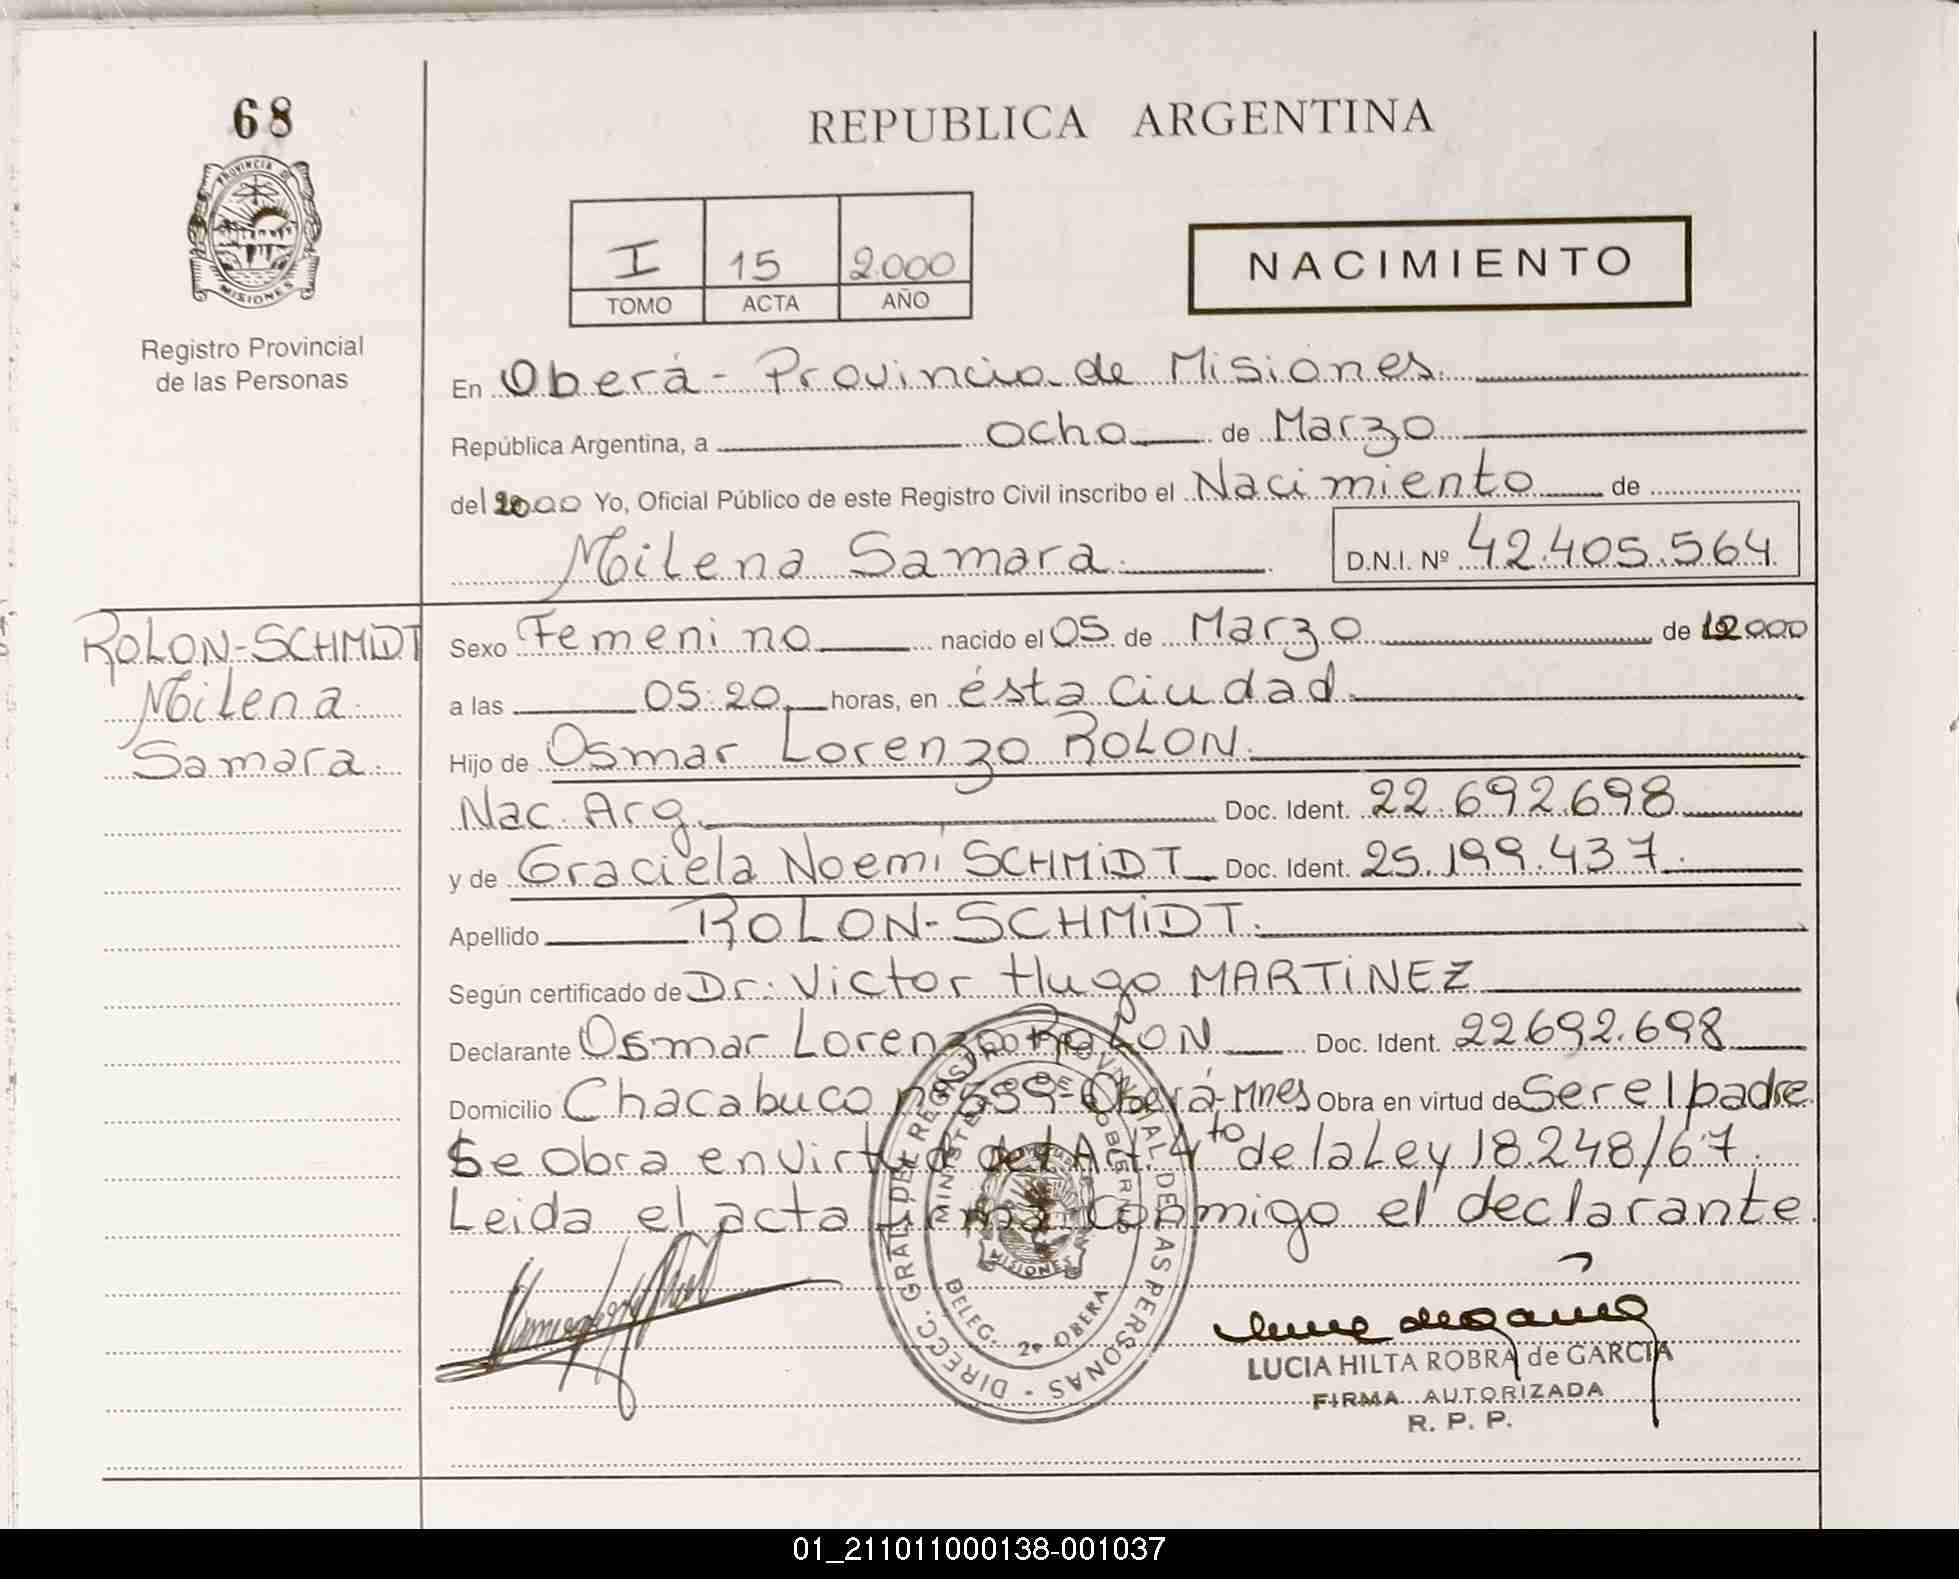 68
PROVINCIA DE
MISIONES
Registro Provincial
de las Personas
REPUBLICA ARGENTINA
I 15 2.000
TOMO ACTA AÑO
NACIMIENTO
En Oberá - Provincia de Misiones.
República Argentina, a ocho de Marzo
del 2000 Yo, Oficial Público de este Registro Civil inscribo el Nacimiento de
Milena Samara. D.N.I. Nº 42.405.564.
ROLON-SCHMIDT
Milena
Samara.
Sexo Femenino nacido el 05 de Marzo de 2000
a las 05:20 horas, en ésta ciudad.
Hijo de Osmar Lorenzo ROLON.
Nac. Arg. Doc. Ident. 22.692.698
y de Graciela Noemí SCHMIDT Doc. Ident. 25.199.437.
Apellido ROLON-SCHMIDT.
Según certificado de Dr. Victor Hugo MARTINEZ
Declarante Osmar Lorenzo ROLON Doc. Ident. 22692.698
Domicilio Chacabuco nº 559- Oberá, Mnes Obra en virtud de Ser el padre.
Se obra en virtud del Art. 4to de la Ley 18.248/67.
Leida el acta firma conmigo el declarante.
DIRECC. GRAL. DEL REGISTRO PROVINCIAL DE LAS PERSONAS
MINISTERIO DE GOBIERNO
MISIONES
DELEG. 2º OBERA
LUCIA HILTA ROBRA de GARCIA
FIRMA AUTORIZADA
R. P. P.
01_211011000138-001037